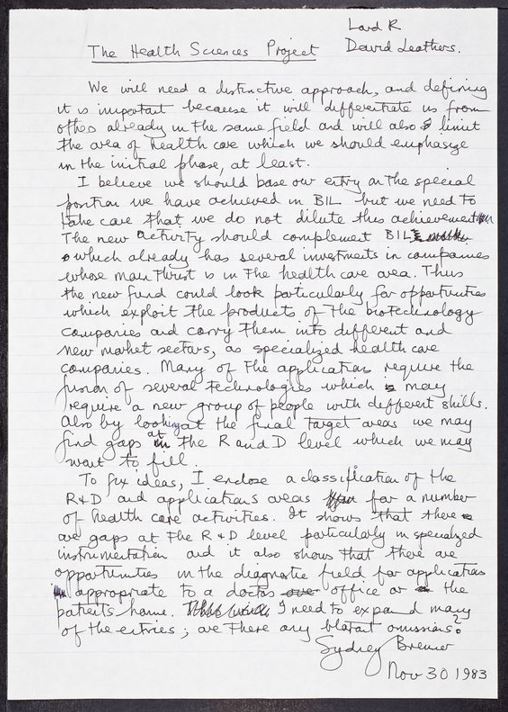 Lord R
David Leathers.
The Health Sciences Project
We will need a distinctive approach, and defining
it is important because it will differentiate us from
others already in the same field and will also limit
the area of health care which we should emphasize
in the initial phase, at least.
I believe we should base our entry on the special
position we have achieved in BIL but we need to
take care that we do not dilute this achievement.
The new activity should complement BIL
which already has several investments in companies
whose main thrust is in the health care area. Thus
the new fund could look particularly for opportunities
which exploit the products of the biotechnology
companies and carry them into different and
new market sectors, as specialized health care
companies. Many of the applications require the
fusion of several technologies which may
require a new group of people with different skills.
Also by looking at the final target areas we may
find gaps at the R and D level which we may
want to fill.
To fix ideas, I enclose a classification of the
R&D and applications areas for a number
of health care activities. It shows that there
are gaps at the R & D level particularly in specialized
instrumentation and it also shows that there are
opportunities in the diagnostic field for applications
appropriate to a doctors office or the
patients home. I need to expand many
of the entries; are there any blatant omissions?
Sydney Brenner
Nov 30 1983